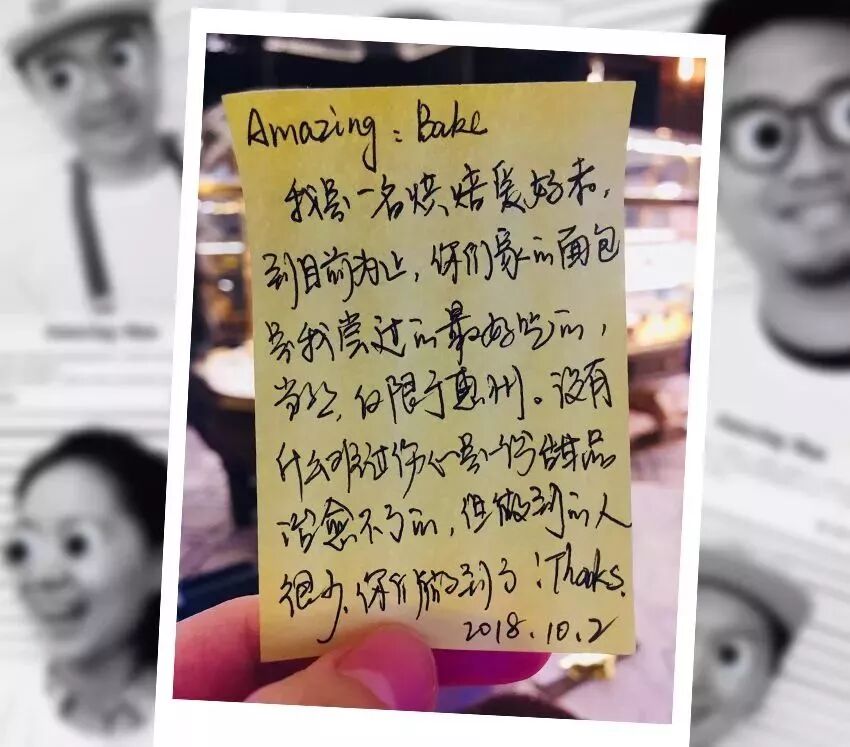 Amazing: Bake
我是一名烘焙爱好者,
到目前为止,你们家的面包
是我尝过的最好吃的,
当然,仅限于惠州。没有
什么难过伤心是一份甜品
治愈不了的,但做到的人
很少,你们做到了!Thanks.
2018.10.2